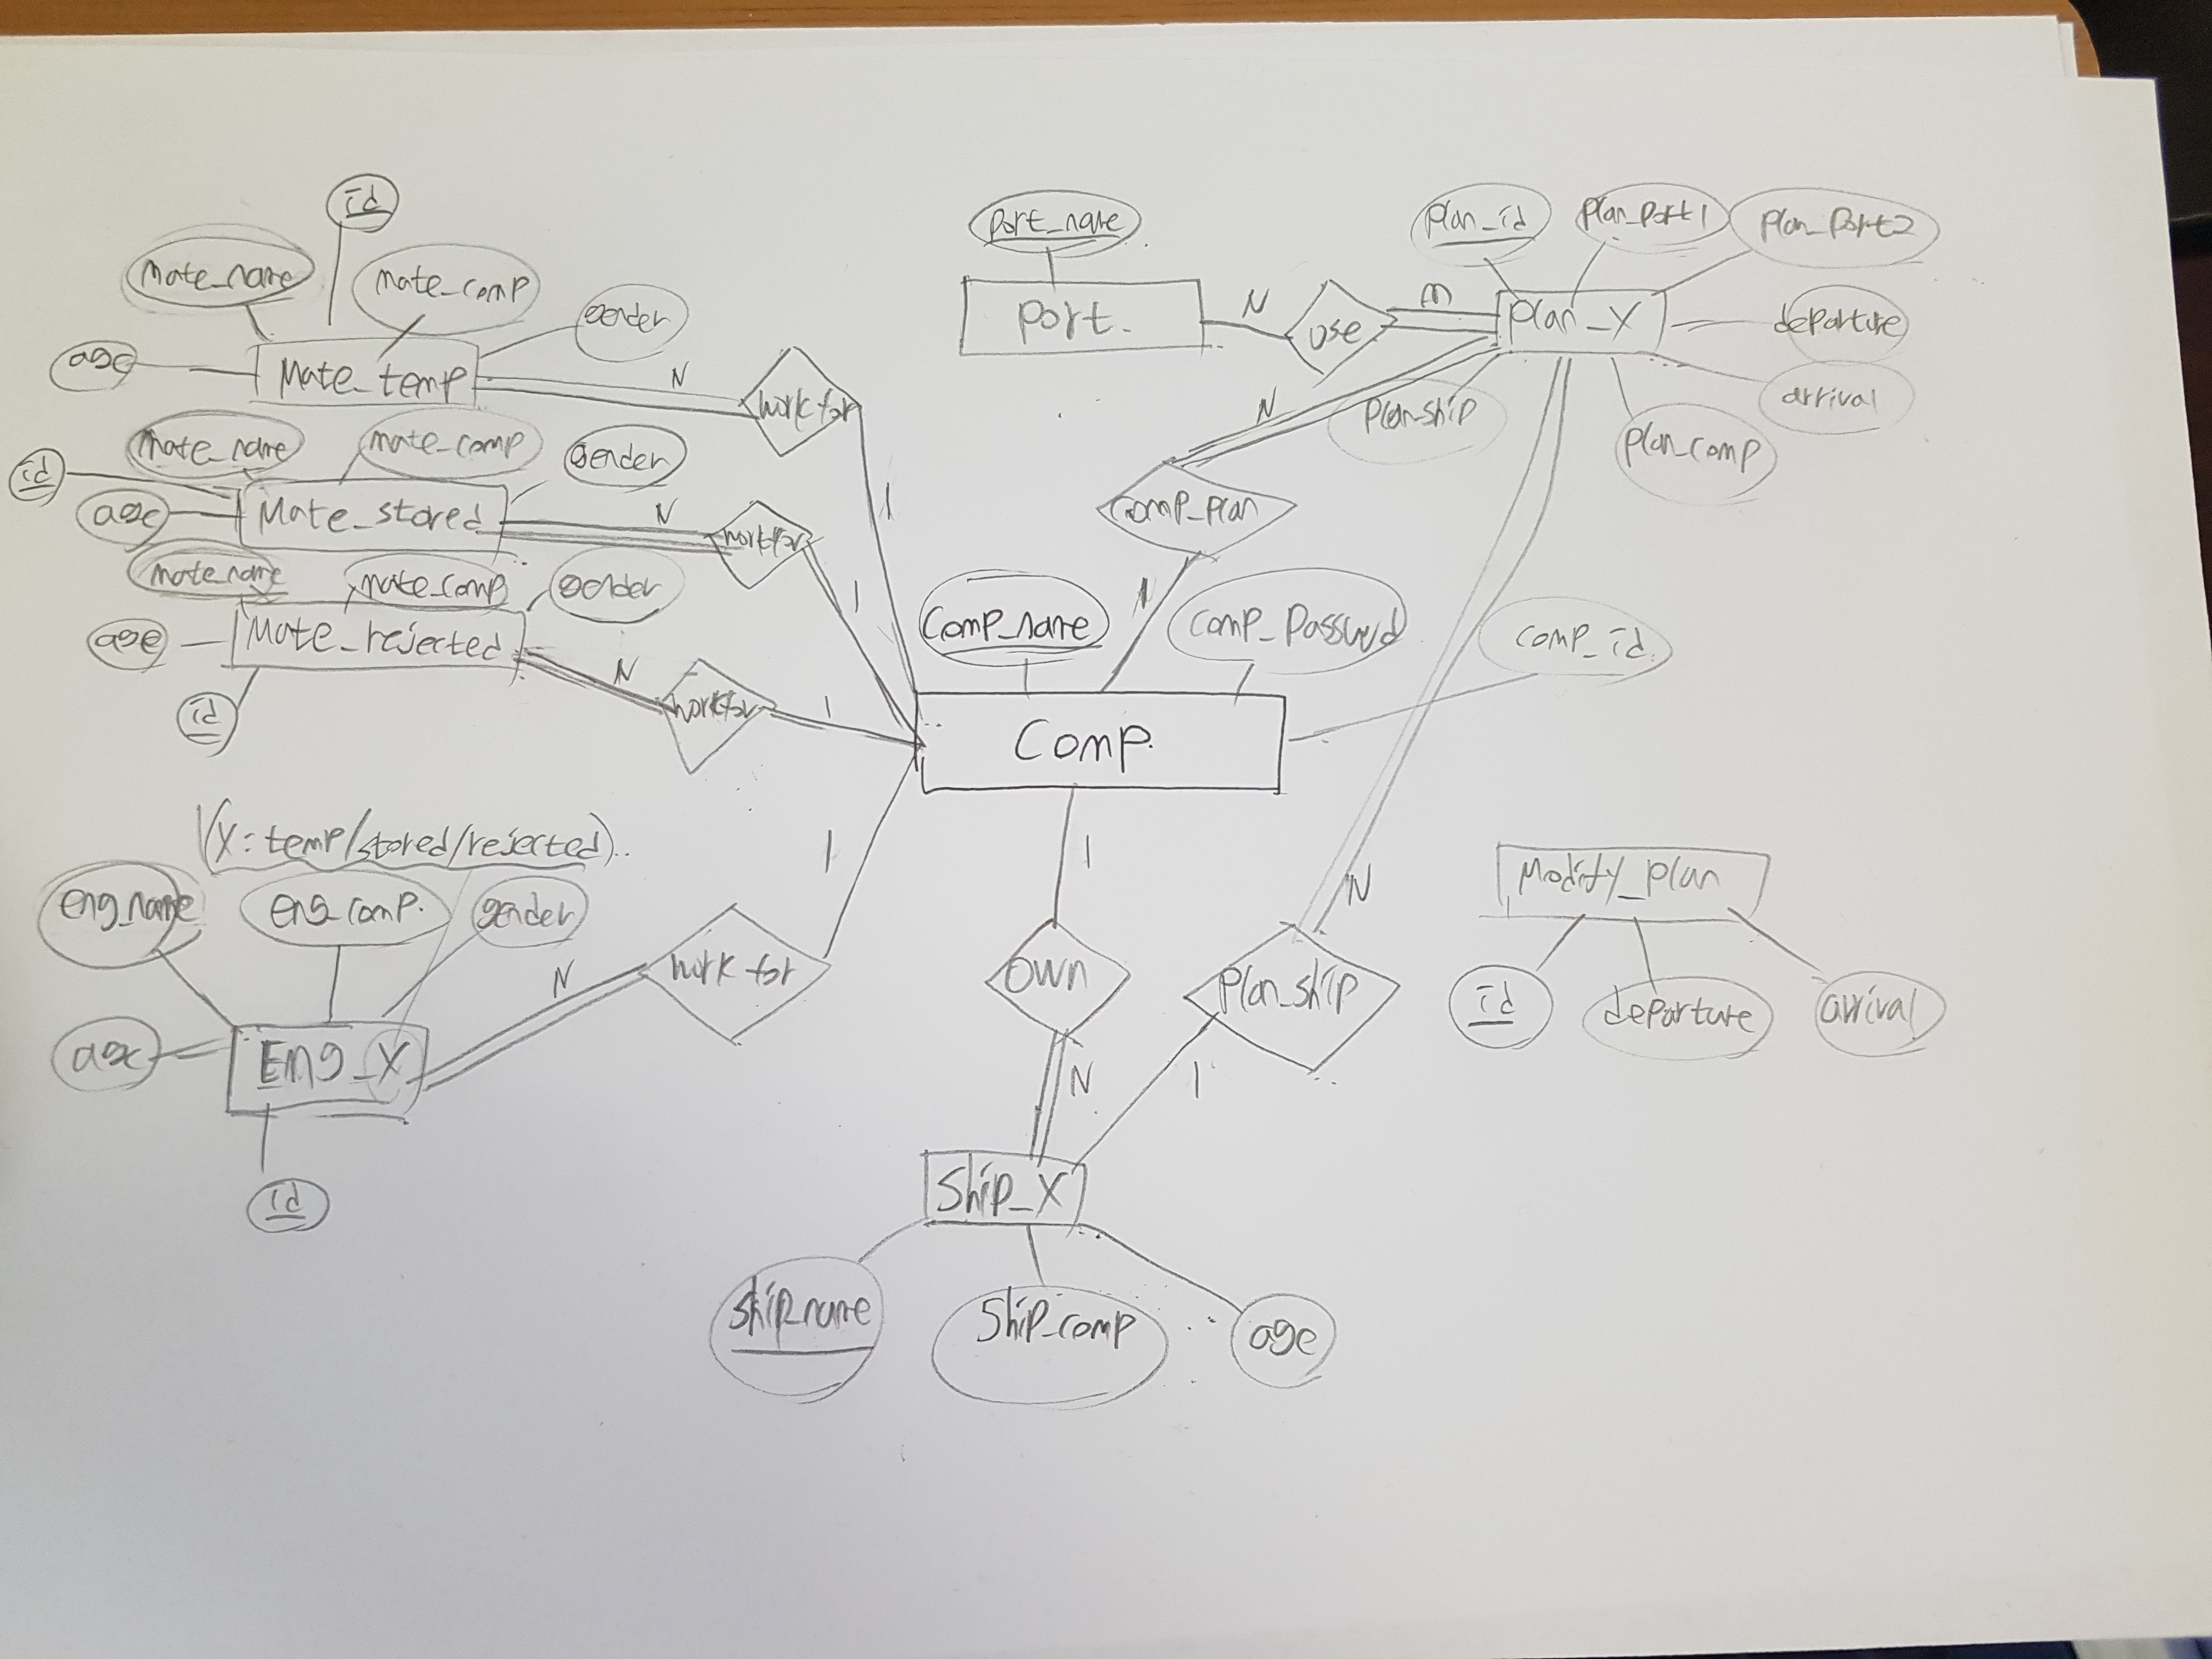 id
mate_name
mate_comp
gender
age
Mate_temp
N
work for
1
mate_name
mate_comp
gender
id
age
Mate_stored
N
work for
1
mate_name
mate_comp
gender
age
Mate_rejected
N
work for
1
id
port_name
port.
N
use
m
plan_id
plan_port1
plan_port2
plan_X
departure
arrival
plan_ship
plan_comp
N
comp_plan
1
Comp_name
comp_passwd
comp_id
Comp.
(X: temp/stored/rejected)..
eng_name
eng_comp.
gender
age
Eng_X
id
N
work for
1
1
own
N
N
plan_ship
1
Ship_X
ship_name
ship_comp
age
Modify_plan
id
departure
arrival